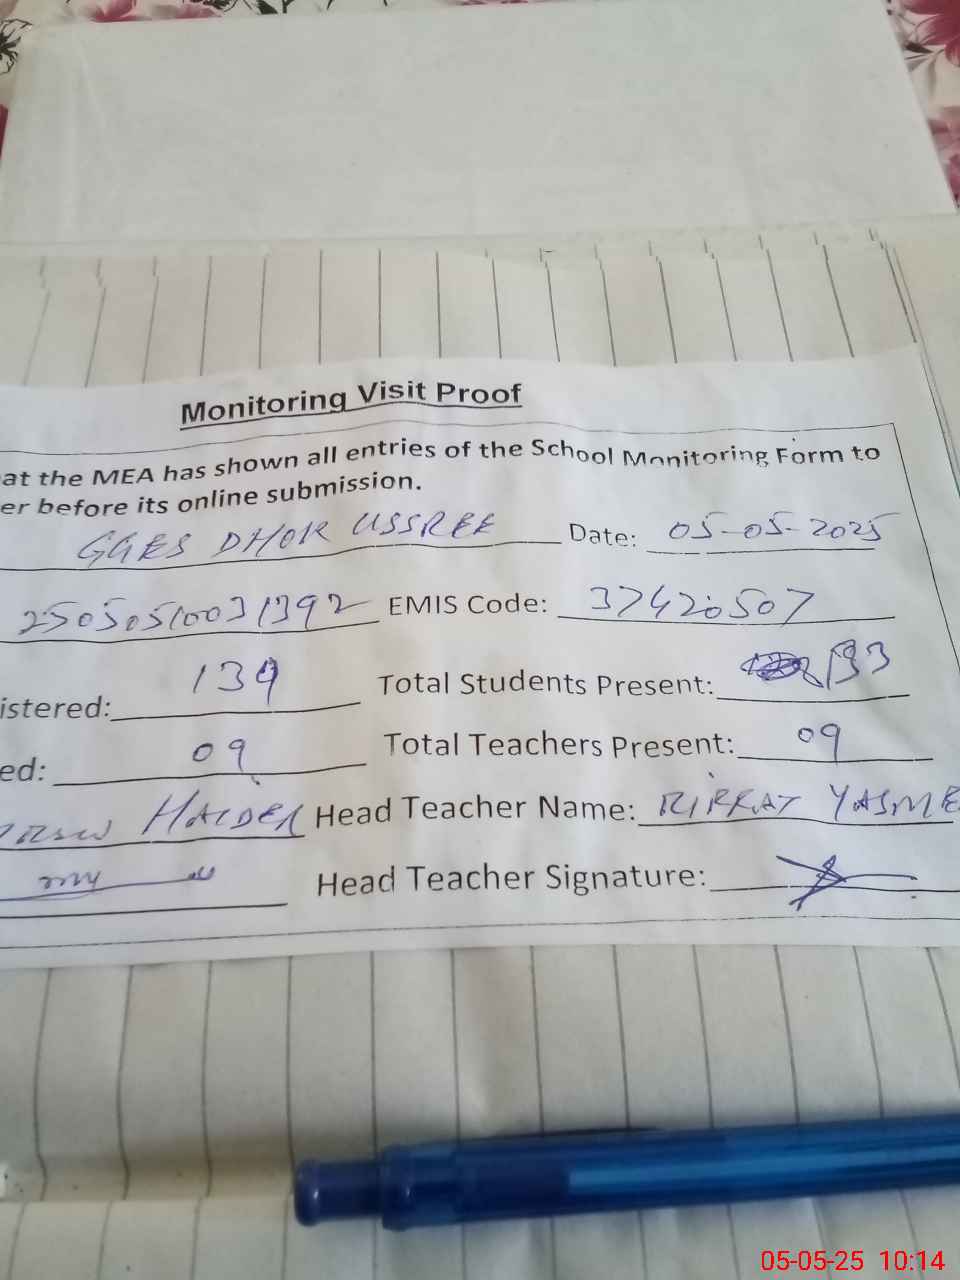 Monitoring Visit Proof
at the MEA has shown all entries of the School Monitoring Form to
er before its online submission.
GGES DHOK USSREE Date: 05-05-2025
25050510031392 EMIS Code: 37420507
istered: 139 Total Students Present: 133
ed: 09 Total Teachers Present: 09
HAIDER Head Teacher Name: YASME
Head Teacher Signature:
05-05-25 10:14